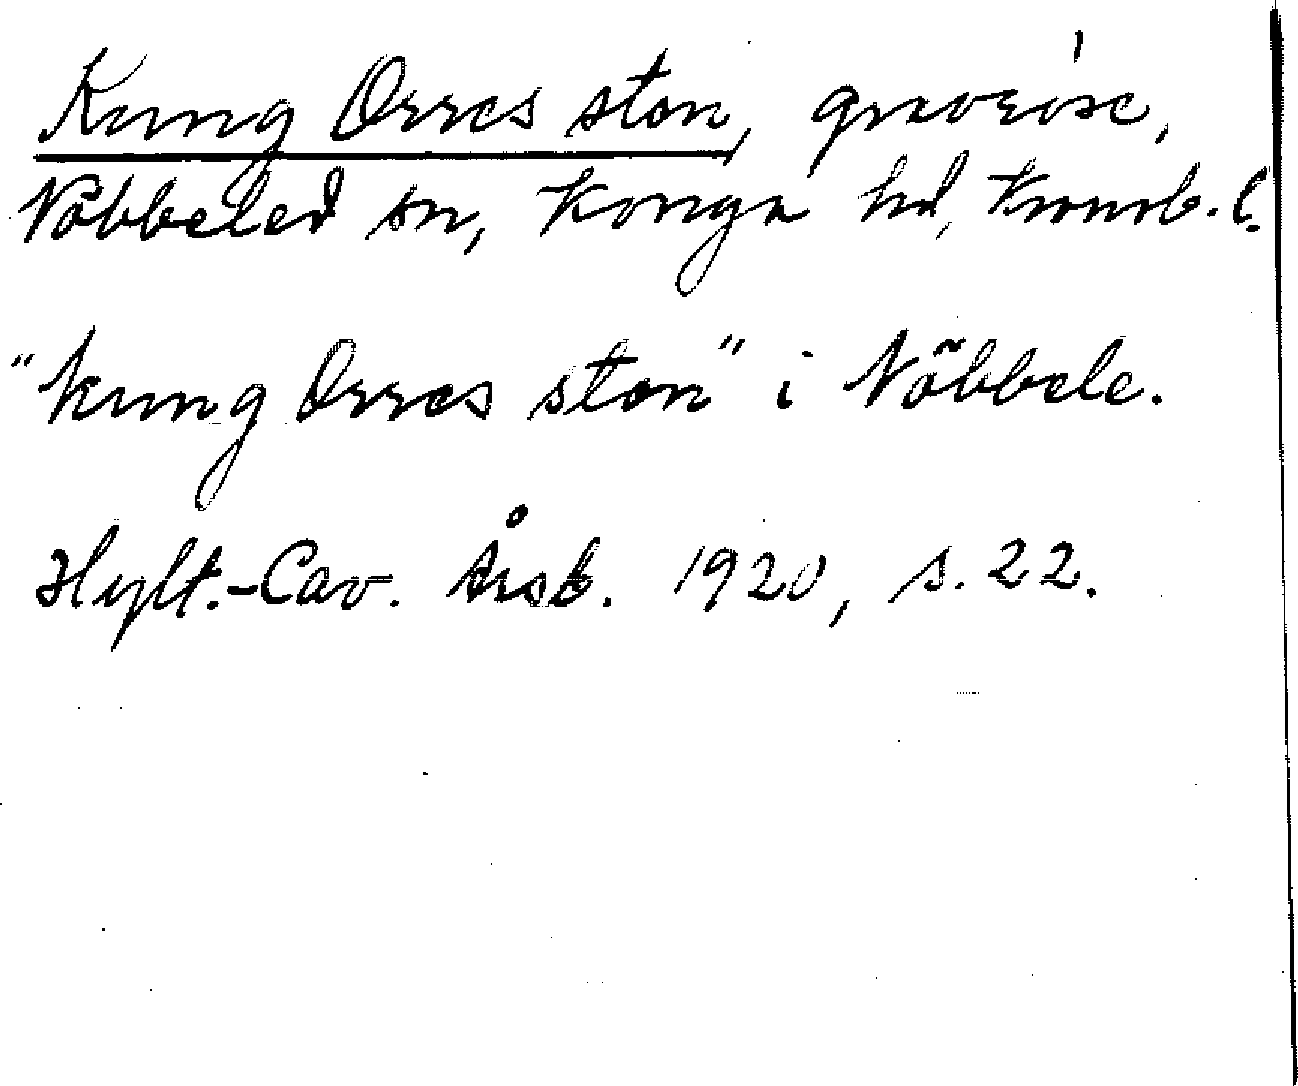 Kung Orres sten, gravröse,
Nöbbeled sn, Konga hd, Kronob. l.
"Kung Orres sten" i Nöbbele.
Hylt.-Cav. Årsb. 1920, s. 22.